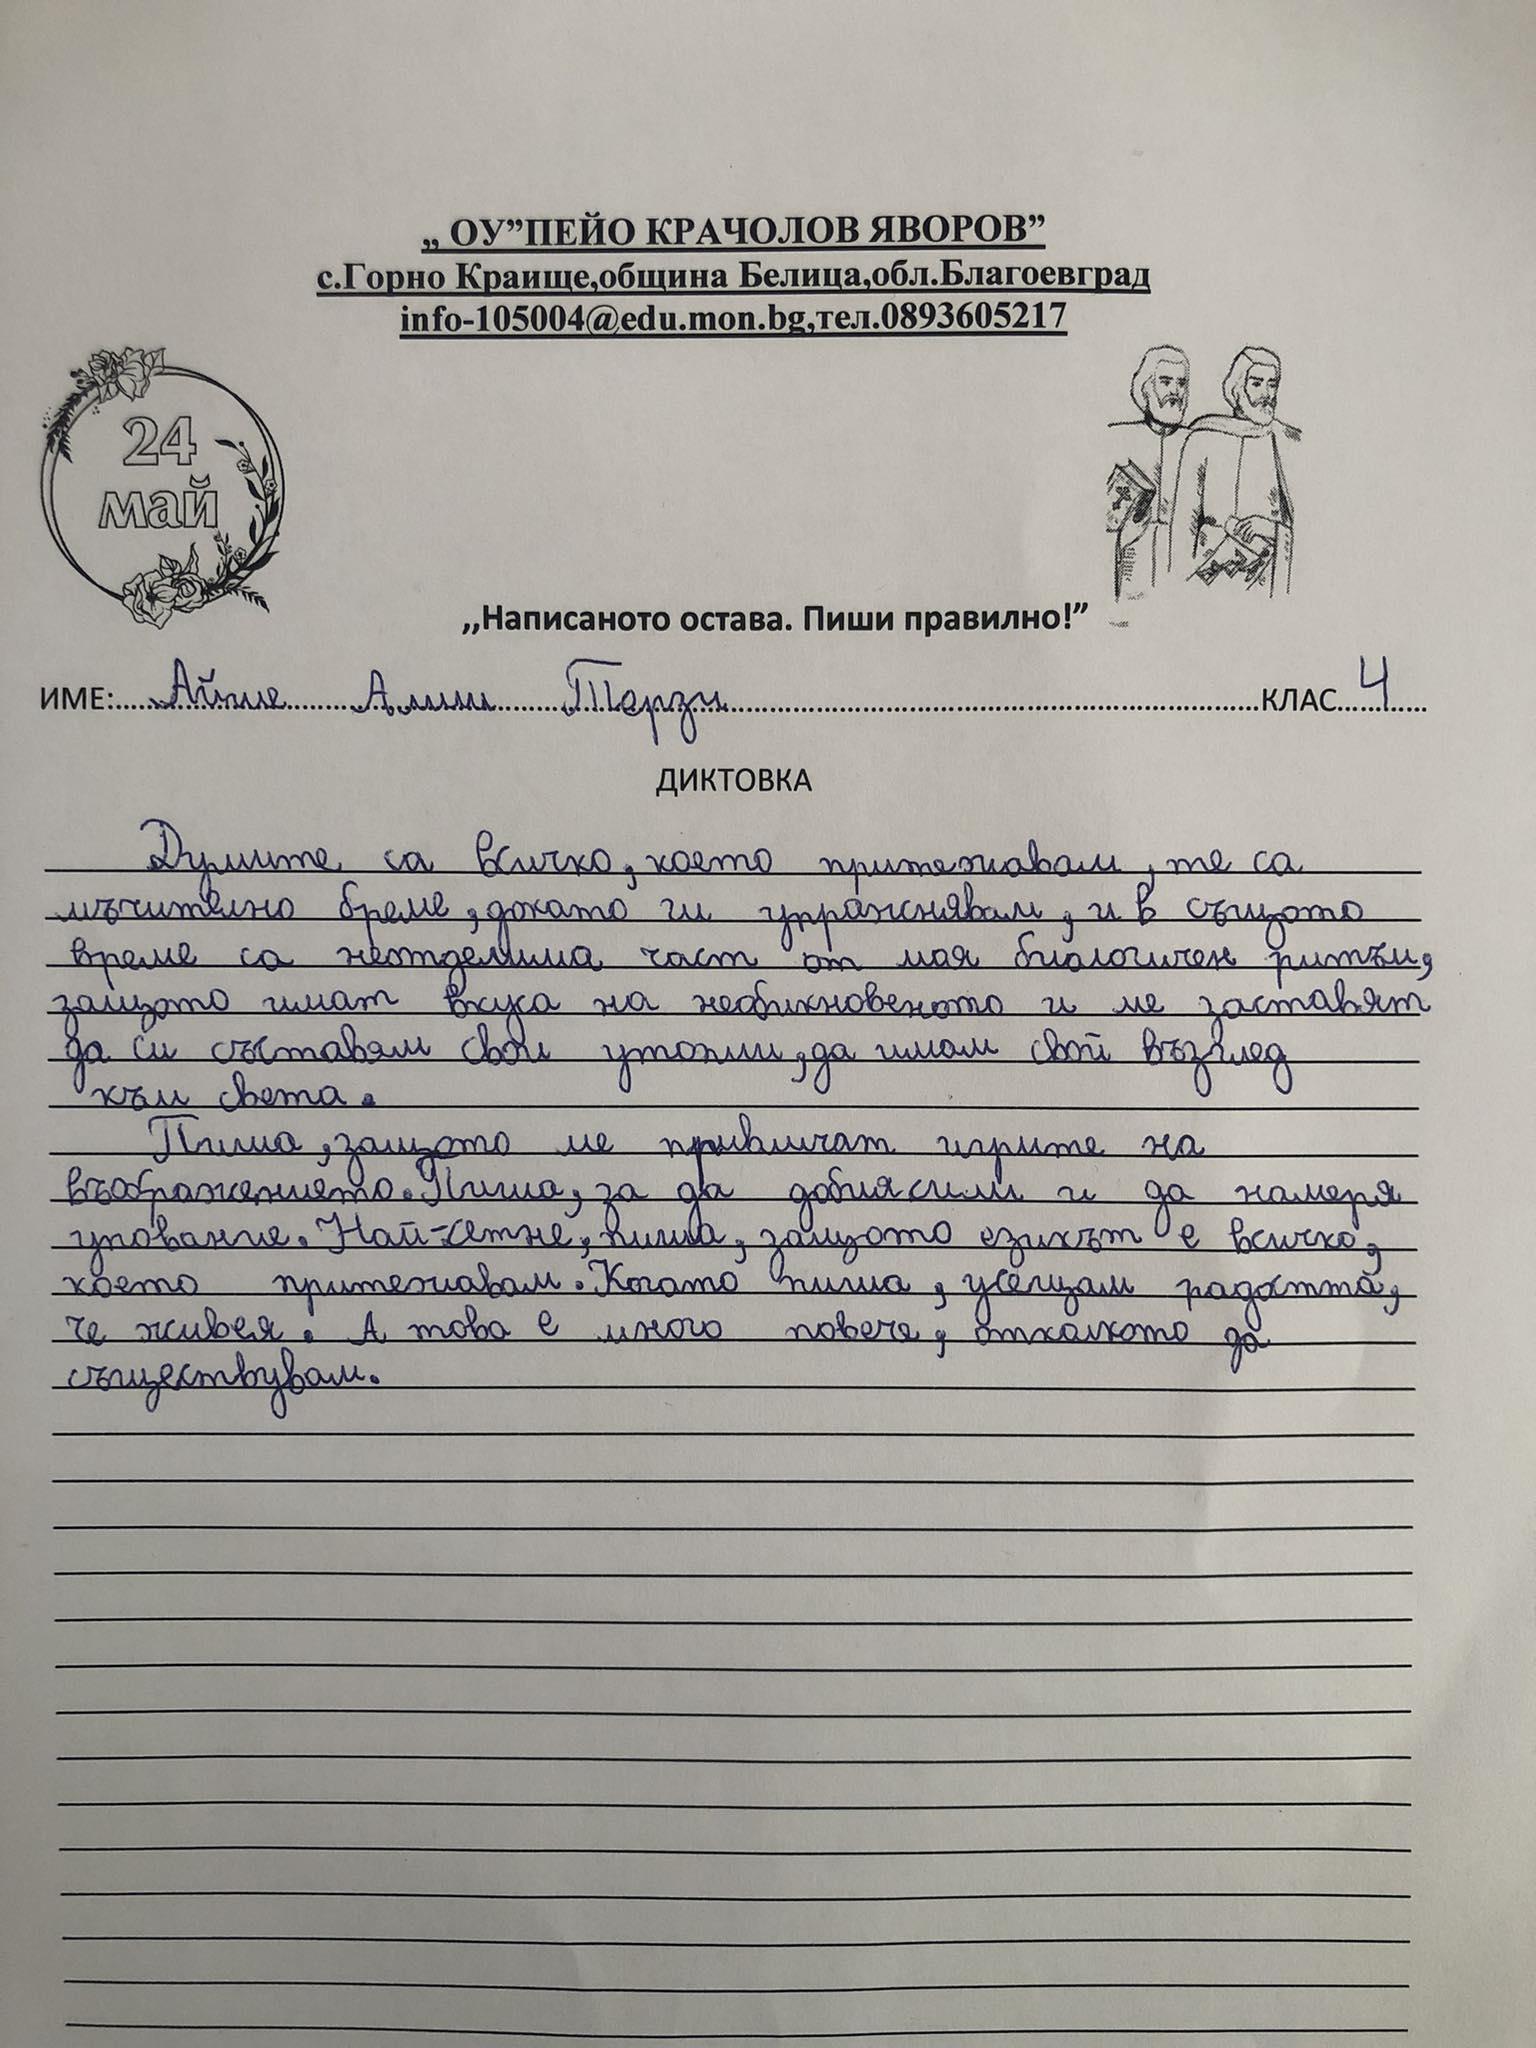 „ ОУ”ПЕЙО КРАЧОЛОВ ЯВОРОВ”
с.Горно Краище,община Белица,обл.Благоевград
info-105004@edu.mon.bg,тел.0893605217
24
май
,,Написаното остава. Пиши правилно!”
ИМЕ:......Айше........Алиш........Терзи........КЛАС...4....
ДИКТОВКА
Думите са всичко, което притежавам, те са
мъчително бреме, докато ги упражнявам, и в същото
време са неотделима част от мая биологичен ритъм,
защото имат вкуса на необикновеното и ме заставят
да си съставям свои утопии, да имам свой възглед
към света.
Пиша, защото ме привличат игрите на
въображението. Пиша, за да добия сили и да намеря
упование. Най-сетне, пиша, защото езикът е всичко,
което притежавам. Когато пиша, усещам радостта,
че живея. А това е много повече, отколкото да
съществувам.